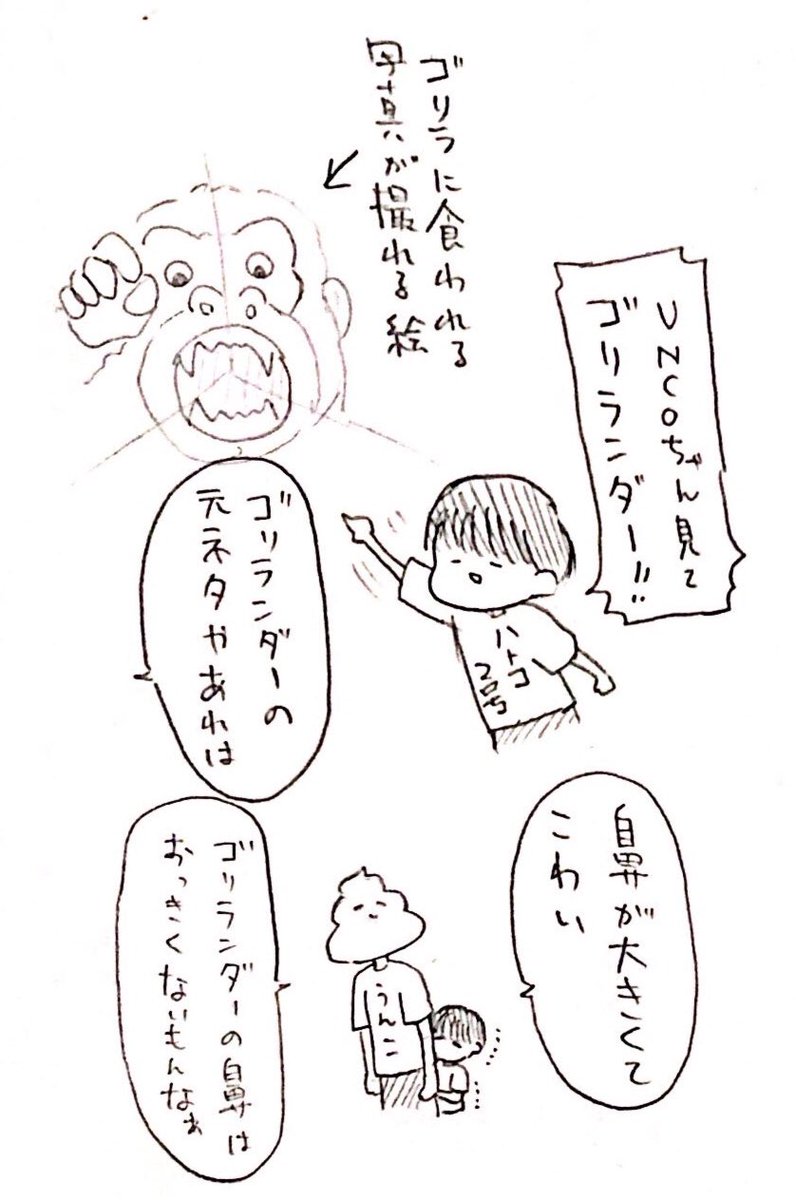 ゴリラに食われる
写真が撮れる絵
UNCOちゃん見て
ゴリランダー!!
ハトコ
2号
ゴリランダーの
元ネタやあれは
鼻が大きくて
こわい
うんこ
ゴリランダーの鼻は
おっきくないもんなぁ